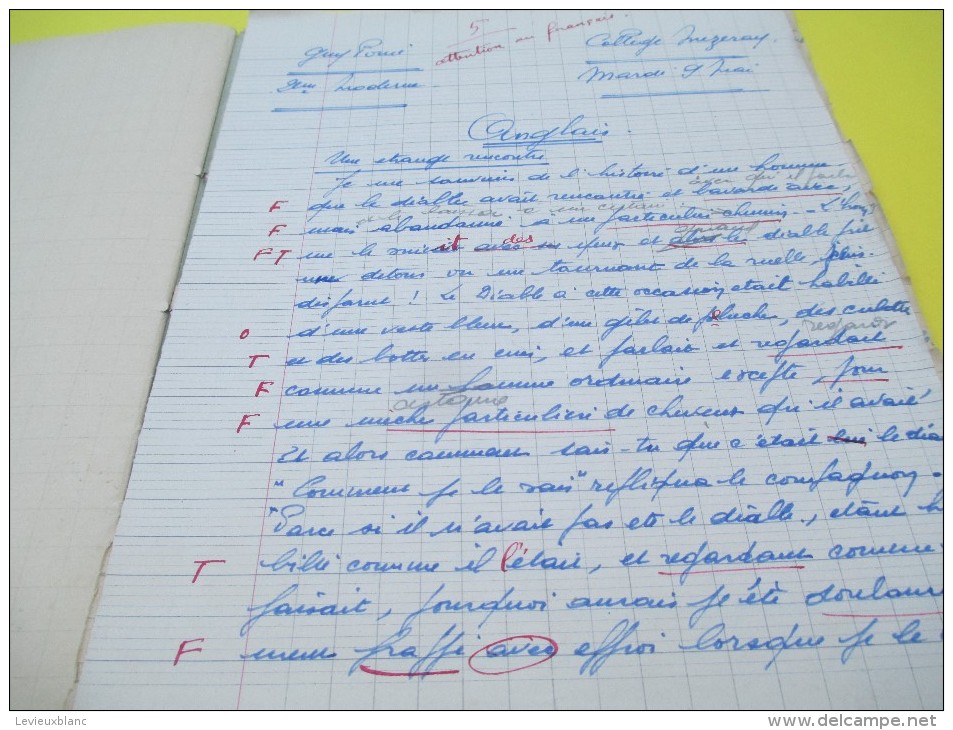 5
attention au français.
Guy
College Mezeray
Moderne
Mardi 9 Mai
Anglais.
Une etrange rencontre
Je me souviens de l'histoire d'un homme
F que le diable avait rencontré et bavarde avec,
F mais abandonné à un particulier chemin.
FT me le suivit avec des yeux et le diable prit
un detour ou une tournant de la ruelle, puis
disparut ! Le Diable à cette occasion etait habillé
O d'une veste bleue, d'un gilet de peluche, des culottes
regarder
T et des bottes en cuir, et parlait et regardant
F comme un homme ordinaire excepte pour
F une mèche particulière de cheveux qu'il avait
Et alors comment sais-tu que c'était le dia
"Comment je le sais" repliqua le compagnon.
"Parce si il n'avait pas ete le diable, etant h
T billé comme il l'était, et regardant comme
faisait, pourquoi aurais je été douloure
F ment frappé avec effroi lorsque je le
Levieuxblanc
www.delcampe.net